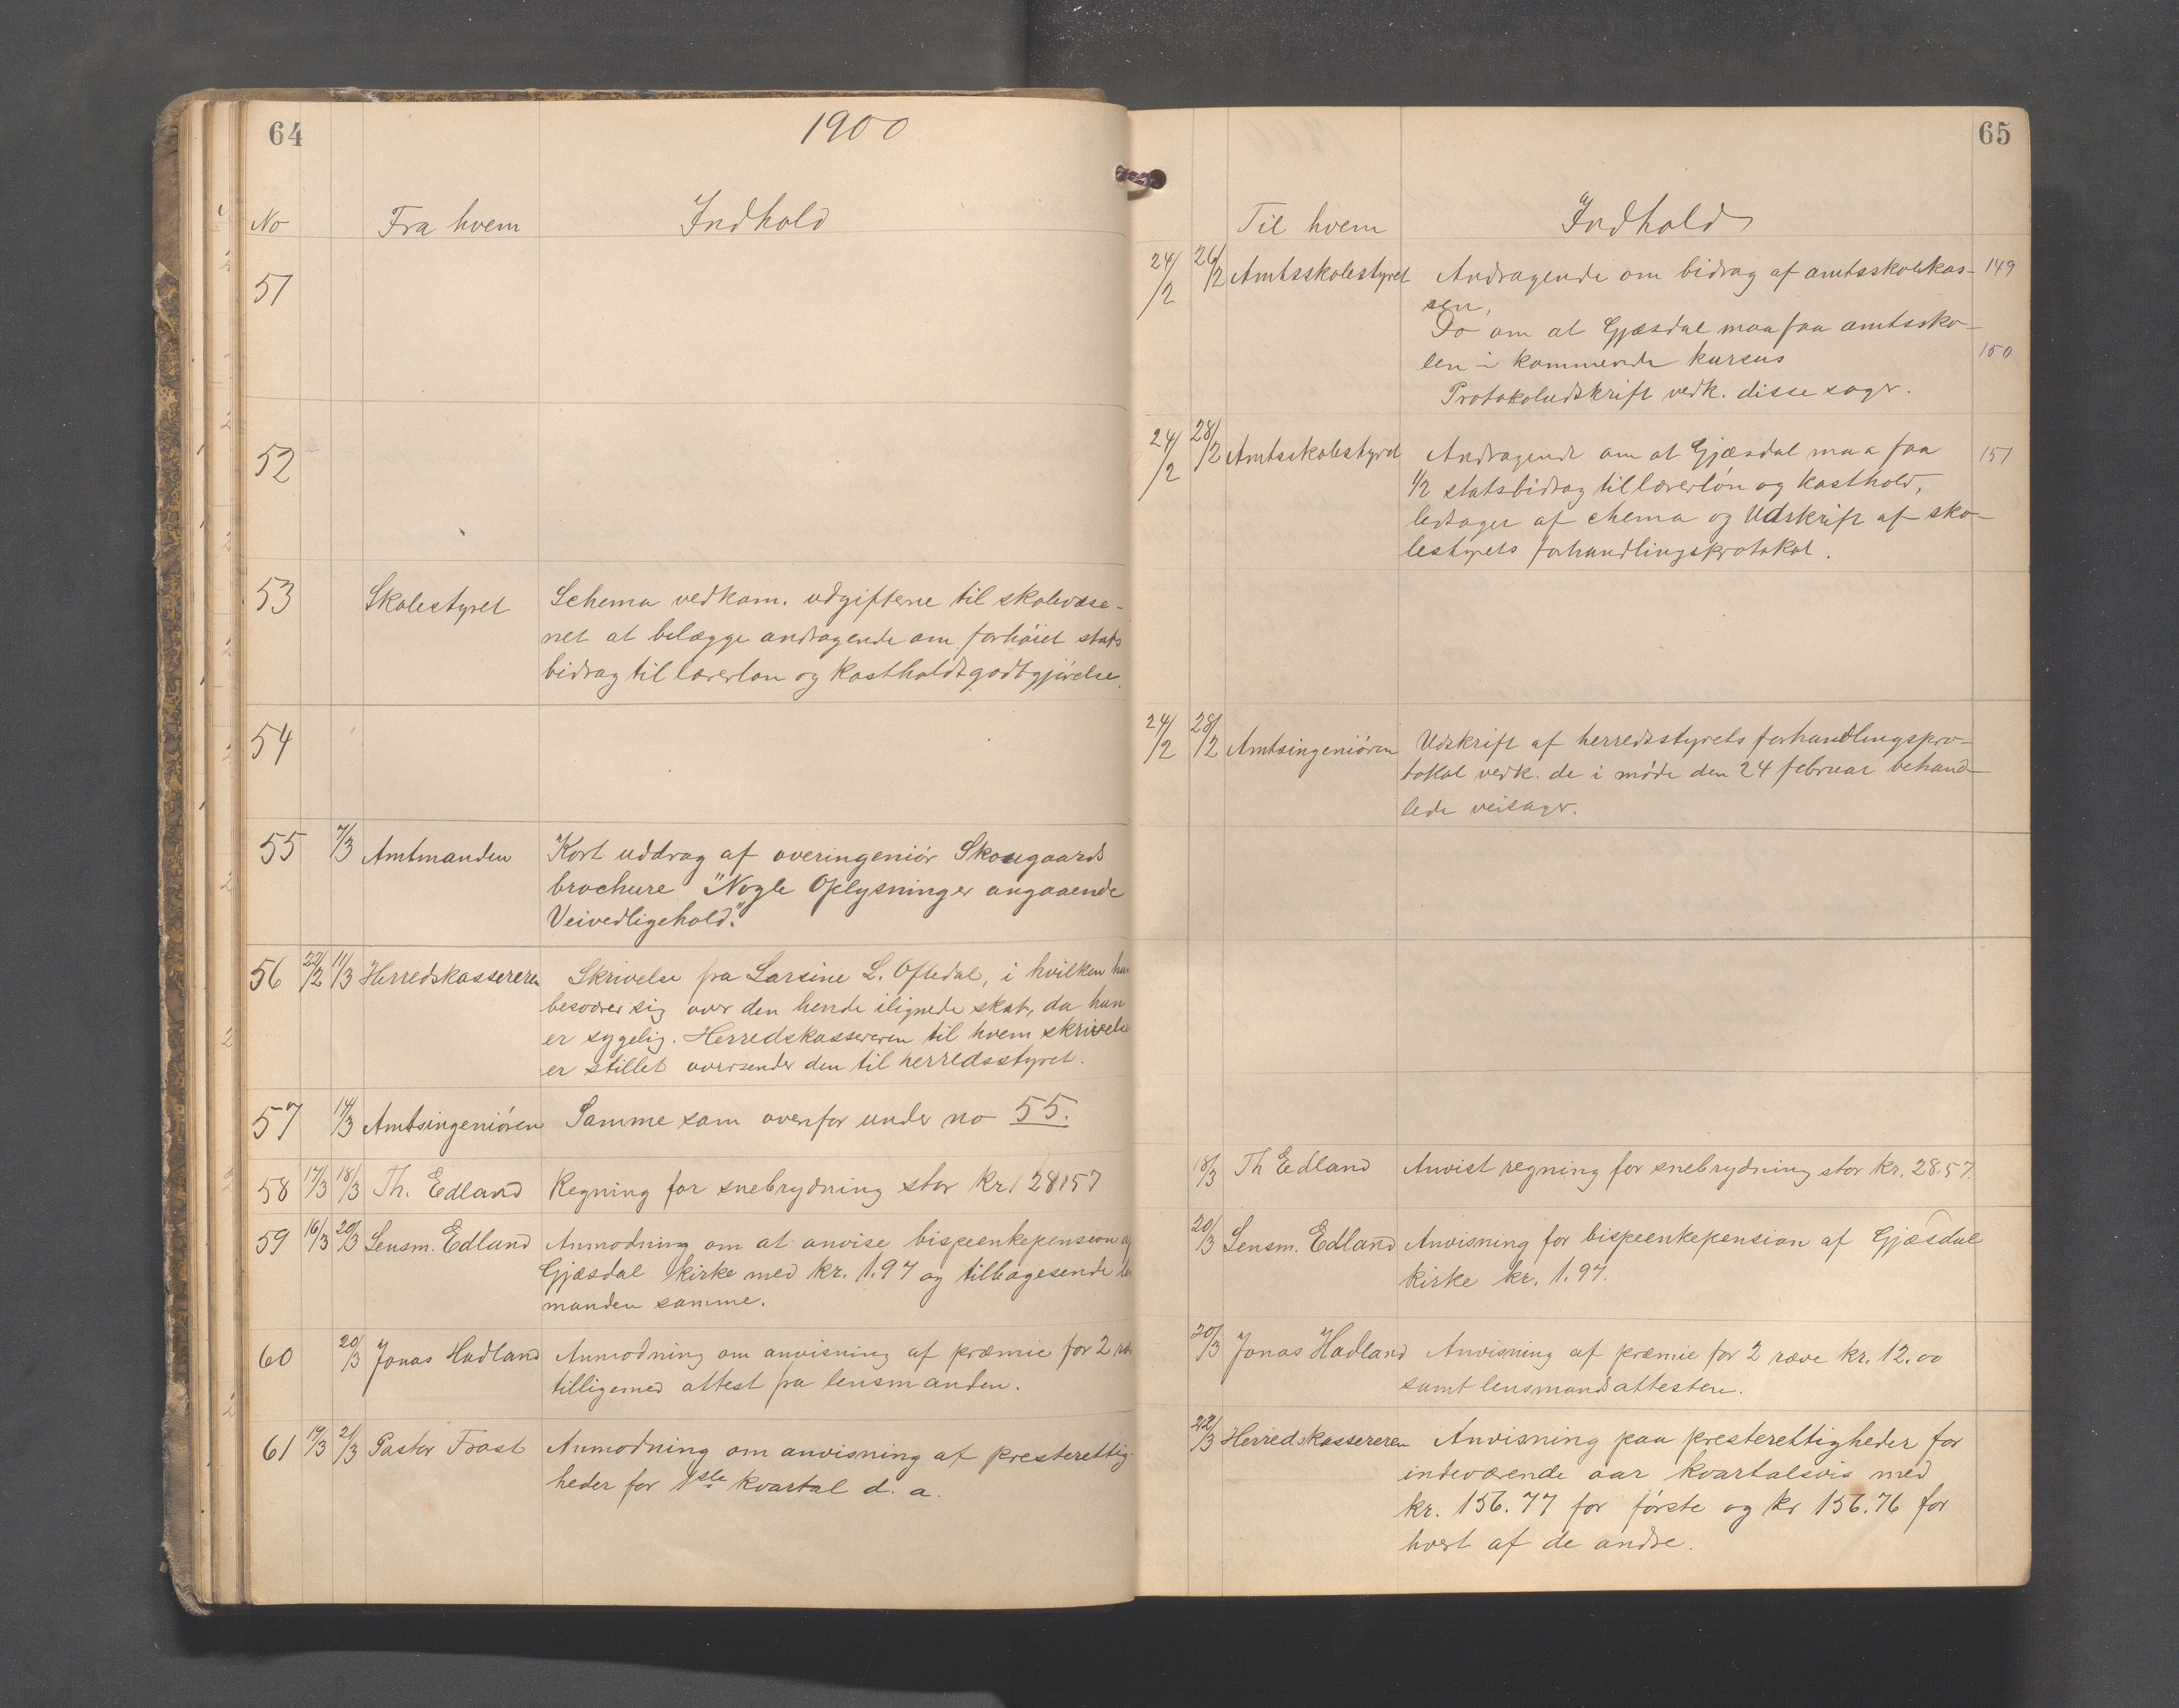 64
1900
No
Fra hvem
Indhold
51
52
53
Skolestyret
Schema vedkom. udgifterne til skolevæse-
net at belægge andragende om forhøiet stats
bidrag til lærerløn og kostholdsgodtgjørelse.
54
55
7/3
Amtmanden
Kort uddrag af overingeniør Skougaards
brochure "Nogle Oplysninger angaaende
Veivedligehold".
56
22/2
11/3
Herredskassereren
Skrivelse fra Larsine L. Oftedal, i hvilken hun
besværer sig over den hende ilignede skat, da hun
er sygelig. Herredskassereren til hvem skrivels
er stillet oversender den til herredsstyret.
57
14/3
Amtsingeniøren
Samme som ovenfor under no 55.
58
17/3
18/3
Th. Edland
Regning for snebrydning stor kr. 28,57
59
16/3
20/3
Lensm. Edland
Anmodning om at anvise bispeenkepension af
Gjæsdal kirke med kr. 1.97 og tilbagesende
manden samme.
60
20/3
Jonas Hadland
Anmodning om anvisning af præmie for 2
tilligemed attest fra lensmanden.
61
19/3
21/3
Pastor Frost
Anmodning om anvisning af presterettig-
heder for 1ste kvartal d. a.
65
Til hvem
Indhold
24/2
26/2
Amtsskolestyret
Andragende om bidrag af amtsskolekas-
sen,
149
Do om at Gjæsdal maa faa amtssko-
len i kommende kursus
150
Protokoludskrift vedk. disse sager.
24/2
28/2
Amtsskolestyret
Andragende om at Gjæsdal maa faa
151
1/2 statsbidrag til lærerløn og kosthold,
ledsaget af chema og Udskrift af sko-
lestyrets forhandlingsprotokol.
24/2
28/2
Amtsingeniøren
Udskrift af herredsstyrets forhandlingspro-
tokol vedk. de i møde den 24 februar behand-
lede veisager.
18/3
Th Edland
Anvist regning for snebrydning stor kr. 28.57.
20/3
Lensm. Edland
Anvisning for bispeenkepension af Gjæsdal
kirke kr. 1.97.
20/3
Jonas Hadland
Anvisning af præmie for 2 ræve kr. 12.00
samt lensmandsattesten.
22/3
Herredskassereren
Anvisning paa presterettigheder for
indeværende aar kvartalsvis med
kr. 156.77 for første og kr 156.76 for
hvert af de andre.